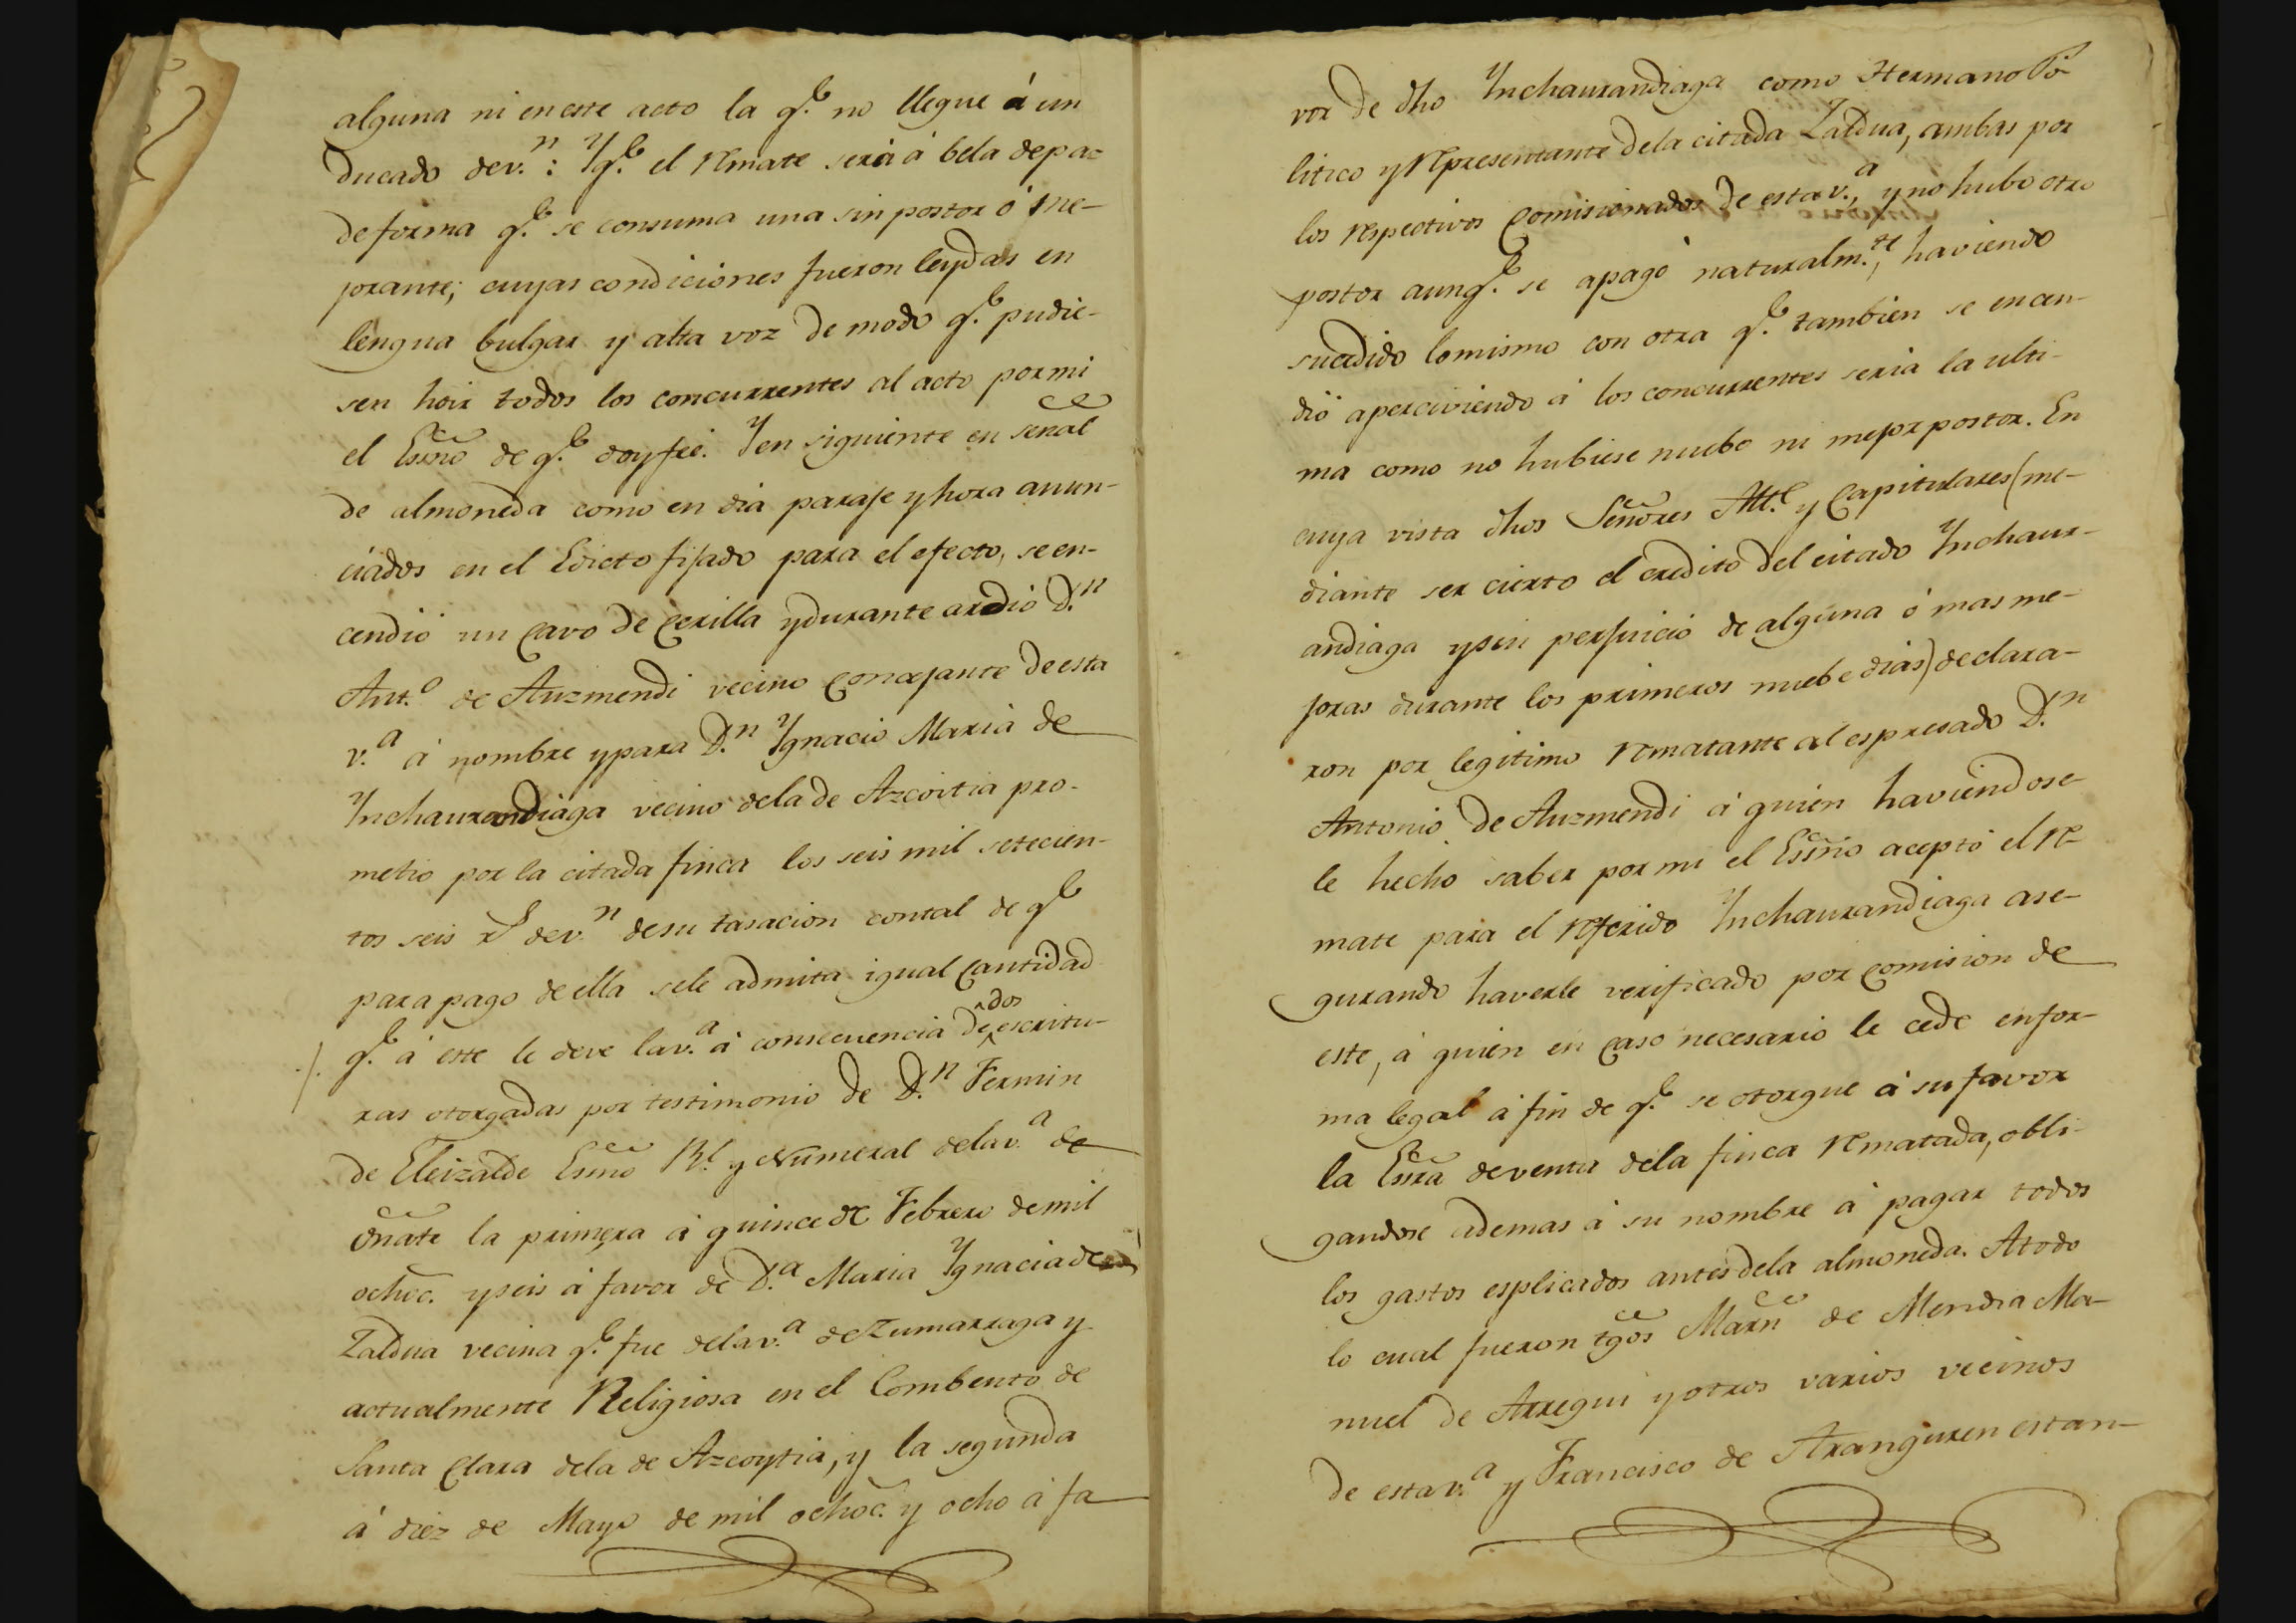 alguna ni en este acto la q.e no llegue á un
ducado de v.n: Y q.e el remate será á bela de pa=
de forma q.e se consuma una sin postor ó me-
jorante; cuyas condiciones fueron leydas en
lengua bulgar y alta voz de modo q.e pudie-
sen hoir todos los concurrentes al acto por mi
el Essno de q.e doy feé. Y en siguiente en señal
de almoneda como en dia paraje y hora anun-
ciados en el Edicto fijado para el efecto, se en-
cendió un cavo de cerilla y durante ardió D.n
Ant.o de Auzmendi vecino concejante de esta
v.a á nombre y para D.n Ygnacio Maria de
Ynchaurandiaga vecino dela de Azcoitia pro-
metió por la citada finca los seis mil setecien-
tos seis rs de v.n de su tasacion con tal de q.e
para pago de ella se le admita igual cantidad
q.e á este le deve la v.a á consecuencia de dos escritu-
ras otorgadas por testimonio de D.n Fermin
de Eleizalde Essno Rl. y Numeral dela v.a de
Oñate la primera á quince de Febrero de mil
ochoc. y seis á favor de D.a Maria Ygnacia de
Zaldua vecina q.e fue dela v.a de Zumarraga y
actualmente Religiosa en el Combento de
Santa Clara dela de Azcoytia, y la segunda
á diez de Mayo de mil ochoc. y ocho á fa
vor de dho Ynchaurandiaga como Hermano Po
litico y representante dela citada Zaldua, ambas por
los respectivos comisionados de esta v.a, y no hubo otro
postor aunq.e se apagó naturalm.te, haviendo
sucedido lo mismo con otra q.e tambien se encen-
dió aperciviendo á los concurrentes seria la ulti-
ma como no hubiese nuebo ni mejor postor. En
cuya vista dhos Señores Alt.e y Capitulares (me-
diante ser cierto el credito del citado Ynchaur-
andiaga y sin perjuicio de alguna ó mas me-
joras durante los primeros nuebe dias) declara-
ron por legitimo rematante al espresado D.n
Antonio de Auzmendi á quien haviendose-
le hecho saber por mi el Essno aceptó el re-
mate para el referido Ynchaurandiaga ase-
gurando haverle verificado por comision de
este, á quien en caso necesario le cede en for-
ma legal á fin de q.e se otorgue á su favor
la Essra de venta dela finca rematada, obli-
gandose ademas á su nombre á pagar todos
los gastos esplicados antes dela almoneda. A todo
lo cual fueron tgos Marn de Mendia Ma-
nuel de Arregui y otros varios vecinos
de esta v.a y Francisco de Aranguren estan-